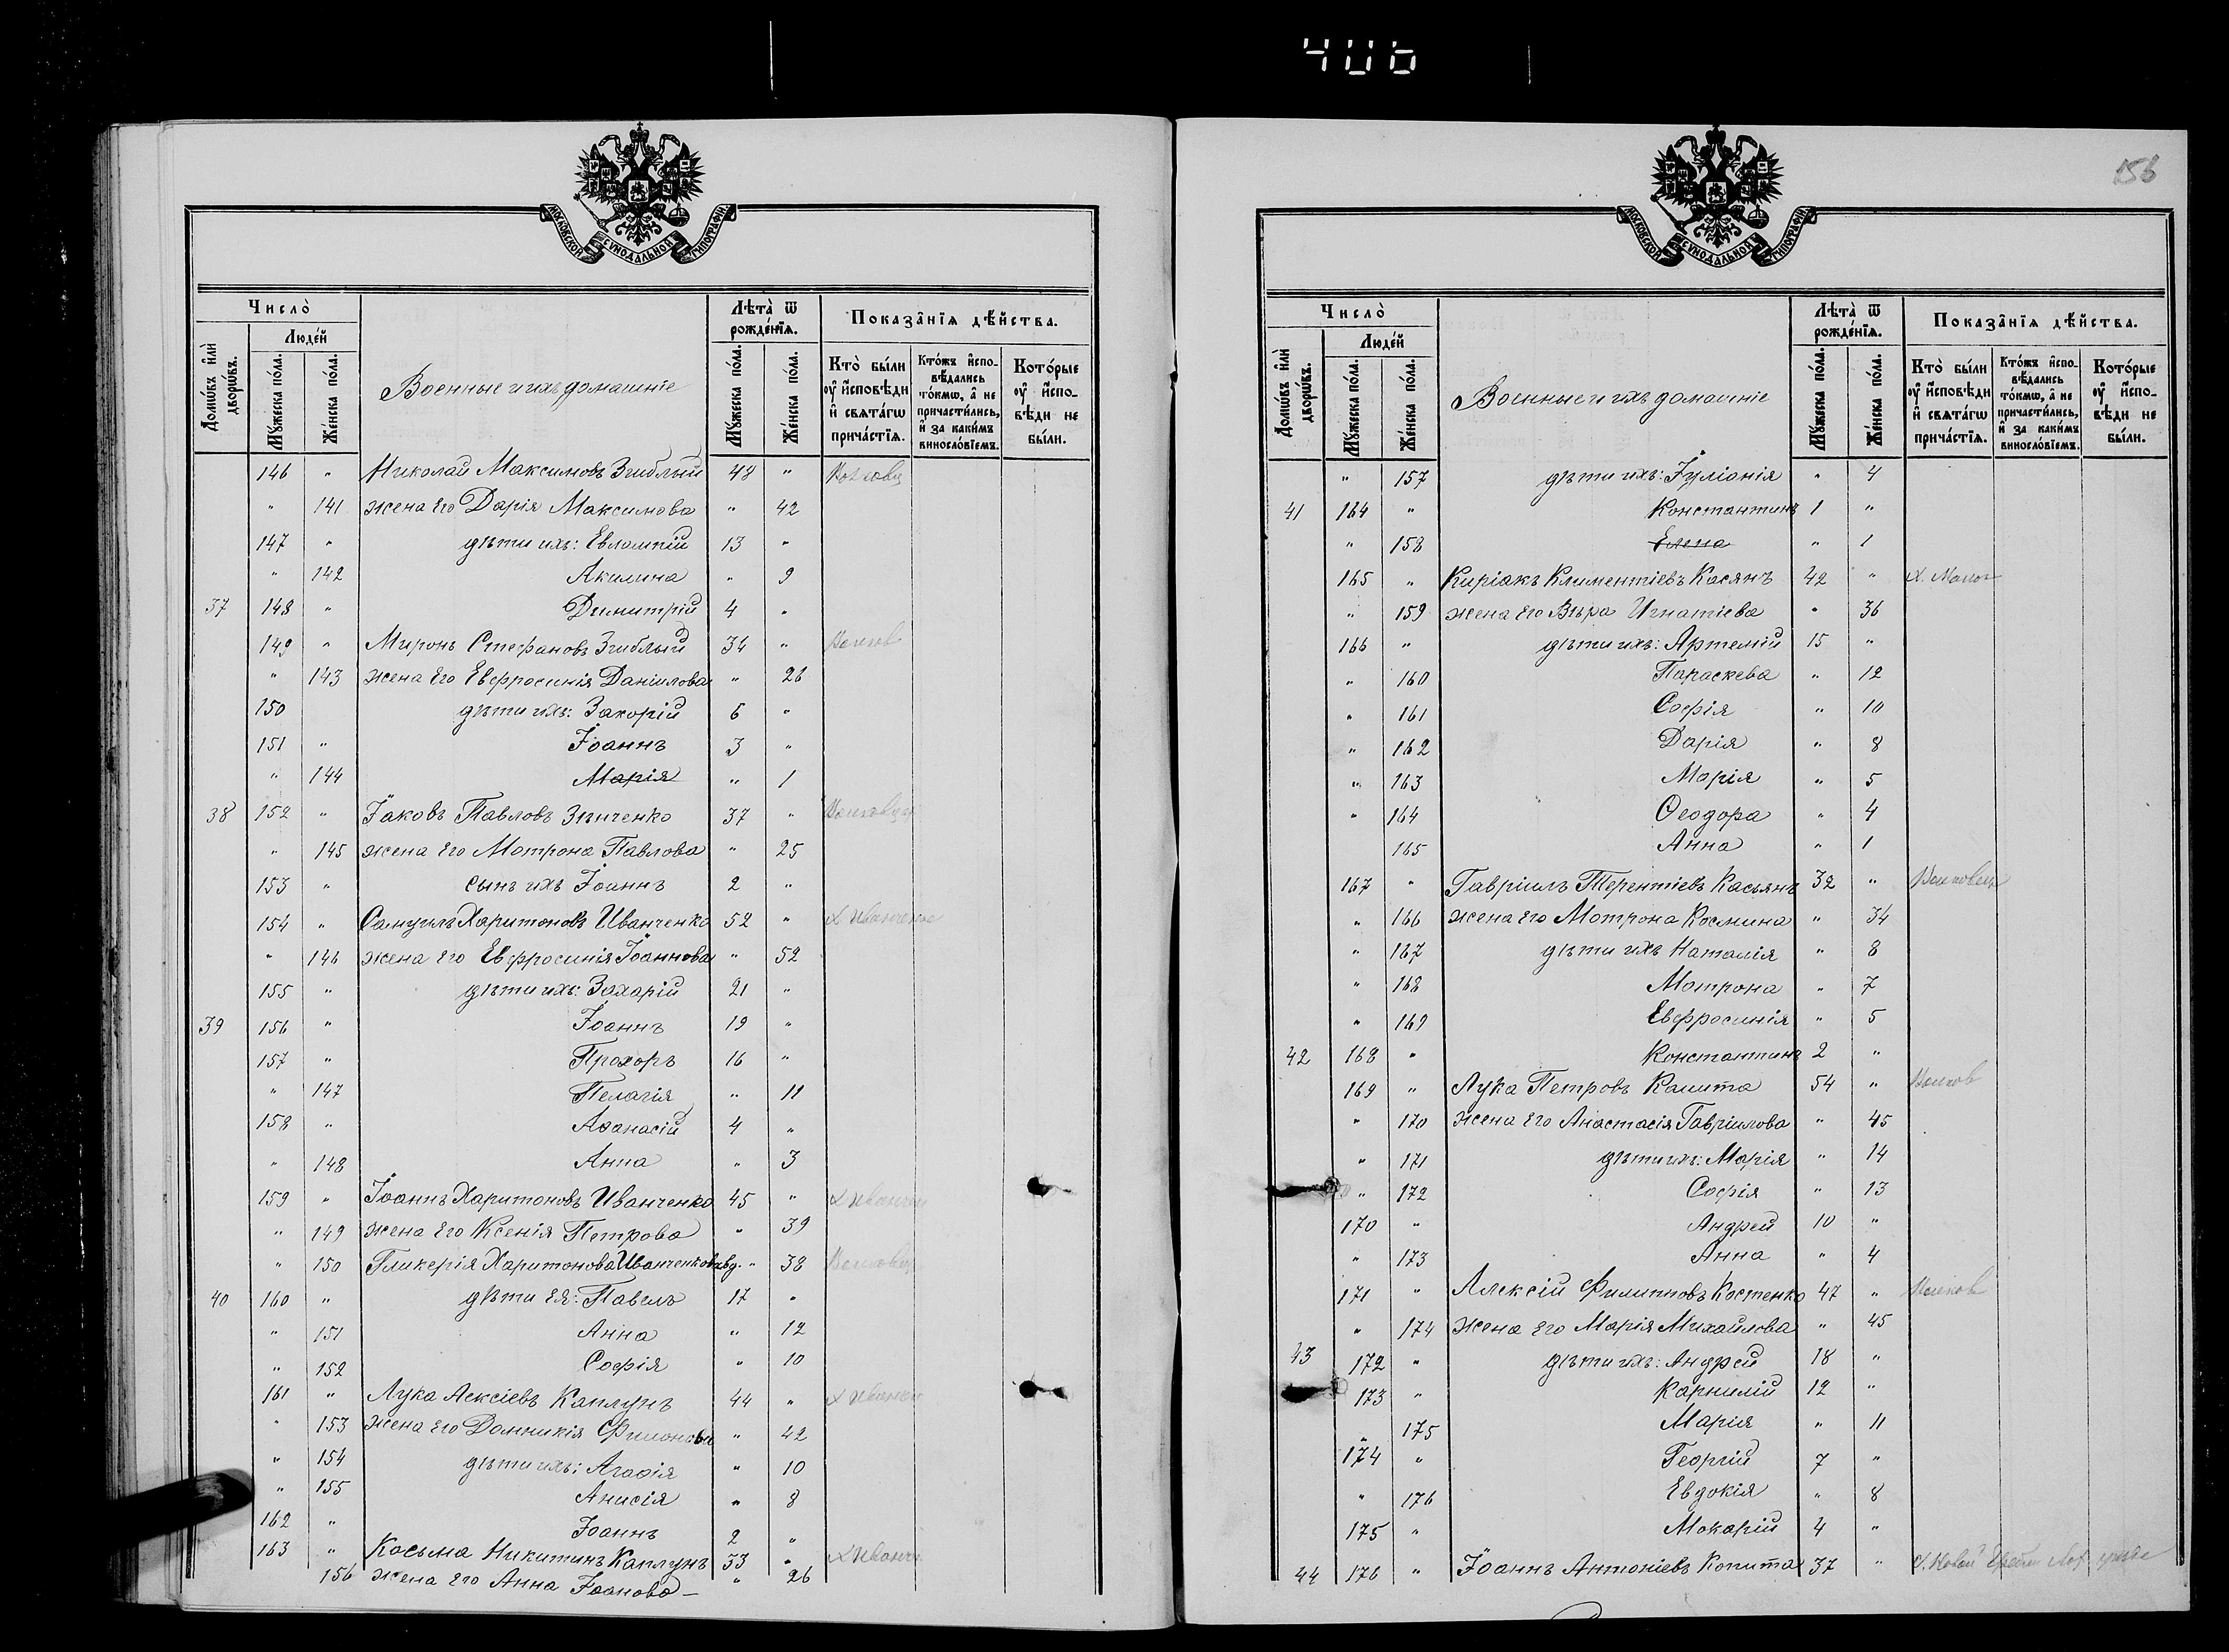 406
МОСКОВСКОЙ СѴНОДАЛЬНОЙ ТИПОГРАФІИ
Число̀
Домѡ́въ и҆лѝ дворѡ́въ.
Люде́й
Мꙋ́жеска по́ла.
Же́нска по́ла.
Военные и ихъ домашніе
Лѣта̀ ѿ рожде́нїѧ.
Мꙋ́жеска по́ла.
Же́нска по́ла.
Показа̑нїѧ дѣ́йства.
Кто̀ бы́ли ᲂу҆ и҆сповѣ́ди и҆ свѧта́гѡ прича́стїѧ.
Кто́жъ и҆сповѣ́дались то́кмѡ, а҆ не причасти́лись, и҆ за каки́мъ винослóвїемъ.
Кото́рые ᲂу҆ и҆сповѣ́ди не бы́ли.
146 " Николай Максимовъ Згиблый 48 "
" 141 жена его Дарія Максимова " 42
147 " дѣти ихъ: Евлампій 13 "
" 142 Акилина " 9
37 148 " Димитрій 4 "
149 " Миронъ Стефановъ Згиблый 34 "
" 143 жена его Евфросинія Даніилова " 26
150 дѣти ихъ: Захорій 6 "
151 " Іоаннъ 3 "
" 144 Марія " 1
38 152 " Іаковъ Павловъ Зинченко 37 "
" 145 жена его Мотрона Павлова " 25
153 " сынъ ихъ Іоаннъ 2 "
154 " Самуилъ Харитоновъ Иванченко 52 " х Иванченко
" 146 жена его Евфросинія Іоаннова " 52
155 " дѣти ихъ: Захарій 21 "
39 156 " Іоаннъ 19 "
157 " Прохоръ 16 "
" 147 Пелагія " 11
158 " Аѳанасій 4 "
" 148 Анна " 3
159 " Іоаннъ Харитоновъ Иванченко 45 "
" 149 жена его Ксенія Петрова " 39
" 150 Гликерія Харитонова Иванченкова вд. " 38
40 160 " дѣти ея: Павелъ 17 "
" 151 Анна " 12
" 152 Софія " 10
161 " Лука Алексіевъ Каплунъ 44 "
" 153 жена его Домникія Филонова " 42
" 154 дѣти ихъ: Агаѳія " 10
" 155 Анисія " 8
162 " Іоаннъ 2 "
163 " Косьма Никитинъ Каплунъ 33 "
156 жена его Анна Іоанова " 26
156
МОСКОВСКОЙ СѴНОДАЛЬНОЙ ТИПОГРАФІИ
Число̀
Домѡ́въ и҆лѝ дворѡ́въ.
Люде́й
Мꙋ́жеска по́ла.
Же́нска по́ла.
Военные и ихъ домашніе
Лѣта̀ ѿ рожде́нїѧ.
Мꙋ́жеска по́ла.
Же́нска по́ла.
Показа̑нїѧ дѣ́йства.
Кто̀ бы́ли ᲂу҆ и҆сповѣ́ди и҆ свѧта́гѡ прича́стїѧ.
Кто́жъ и҆сповѣ́дались то́кмѡ, а҆ не причасти́лись, и҆ за каки́мъ винослóвїемъ.
Кото́рые ᲂу҆ и҆сповѣ́ди не бы́ли.
" 157 дѣти ихъ: Іуліанія " 4
41 164 " Константинъ 1 "
" 158 Елена " 1
165 " Киріакъ Климентіевъ Касянъ 42 "
" 159 жена его Вѣра Игнатіева " 36
166 " дѣти ихъ: Артемій 15 "
" 160 Параскева " 12
" 161 Софія " 10
" 162 Дарія " 8
" 163 Марія " 5
" 164 Ѳеодора " 4
165 Анна " 1
167 " Гавріилъ Терентіевъ Касьянъ 32 "
" 166 жена его Мотрона Космина " 34
" 167 дѣти ихъ Наталія " 8
" 168 Мотрона " 7
" 169 Евфросинія " 5
42 168 " Константинъ 2 "
169 " Лука Петровъ Калита 54 "
" 170 жена его Анастасія Гавріилова " 45
" 171 дѣти ихъ: Марія " 14
" 172 Софія " 13
170 " Андрей 10 "
" 173 Анна " 4
171 " Алексій Филипповъ Костенко 47 "
" 174 жена его Марія Михайлова " 45
43 172 " дѣти ихъ: Андрей 18 "
173 " Карнилій 12 "
" 175 Мария " 11
174 " Георгій 7 "
" 176 Евдокія " 8
175 " Мокарій 4 "
44 176 " Іоаннъ Антоніевъ Копита 37 "